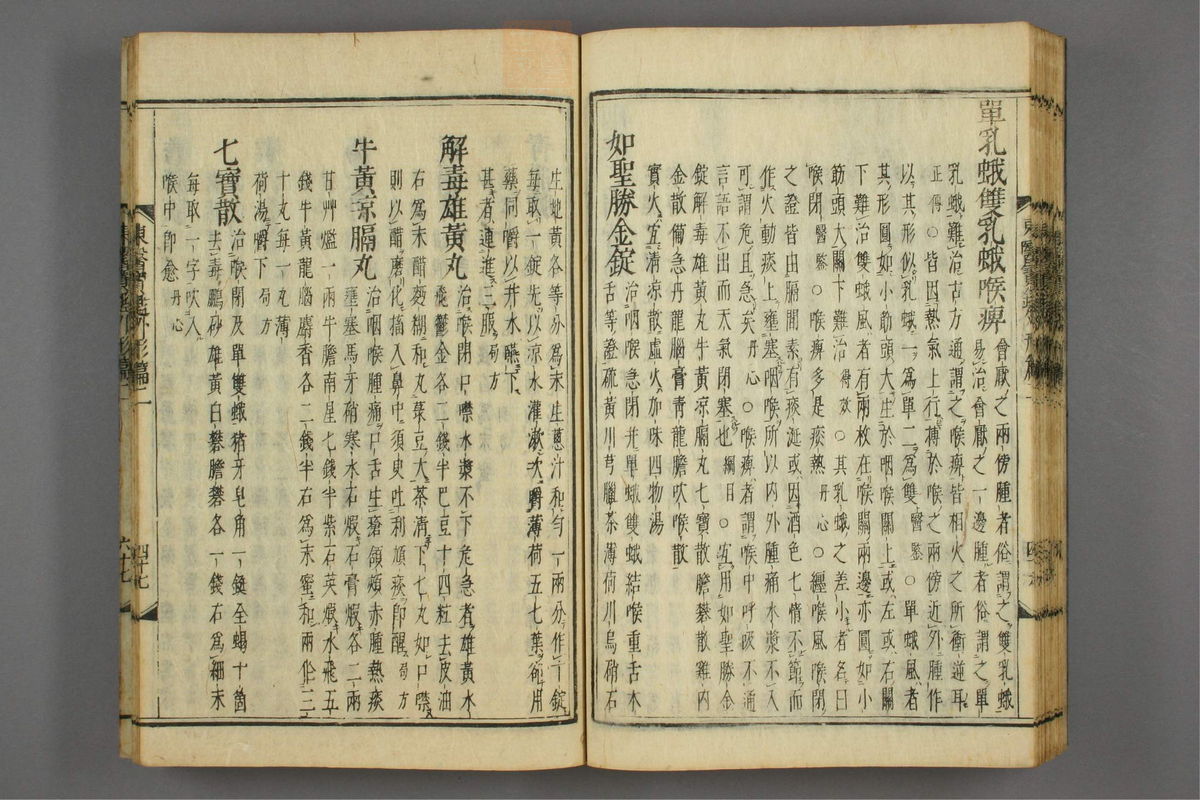 單乳蛾雙乳蛾喉痺 會厭之兩傍腫者俗謂之雙乳蛾
易治會厭之一邊腫者俗謂之單
乳蛾難治古方通謂之喉痺皆相火之所衝逆耳
正傳○皆因熱氣上行搏於喉之兩傍近外腫作
以其形似乳蛾一爲單二爲雙醫鑒○單蛾風者
其形圓如小筯頭大生於咽喉關上或左或右關
下難治雙蛾風者有兩枚在喉關兩邊亦圓如小
筯頭大關下難治得效○其乳蛾之差小者名曰
喉閉醫鑒○喉痺多是痰熱丹心○纏喉風喉閉
之證皆由膈間素有痰涎或因酒色七情不節而
作火動痰上壅塞咽喉所以內外腫痛水漿不入
可謂危且急矣丹心○喉痺者謂喉中呼吸不通
言語不出而天氣閉塞也綱目○宜用如聖勝金
錠解毒雄黃丸牛黃凉膈丸七寶散膽礬散雞內
金散備急丹龍腦膏靑龍膽吹喉散
實火宜淸凉散虛火加味四物湯
如聖勝金錠 治咽喉急閉幷單蛾雙蛾結喉重舌木
舌等證硫黃川芎臘茶薄荷川烏硝石
生地黃各等分爲末生葱汁和勻一兩分作十錠
每取一錠先以凉水灌漱次嚼薄荷五七葉却用
藥同嚼以井水嚥下
甚者連進三服局方
解毒雄黃丸 治喉閉口噤水漿不下危急者雄黃水
飛鬱金各二錢半巴豆十四粒去皮油
右爲末醋麪糊和丸菉豆大茶淸下七丸如口噤
則以醋磨化㨪入鼻中須臾吐利頑痰卽醒局方
牛黃凉膈丸 治咽喉腫痛口舌生瘡頷頰赤腫熱痰
壅塞馬牙硝寒水石煆石膏煆各二兩
甘艸爁一兩牛膽南星七錢半紫石英煆水飛五
錢牛黃龍腦麝香各二錢半右爲末蜜和兩作三
十丸每一丸薄
荷湯嚼下局方
七寶散 治喉閉及單雙蛾猪牙皂角一鋌全蝎十箇
去毒鵬砂雄黃白礬膽礬各一錢右爲細末
每取一字吹入
喉中卽愈丹心
東醫寶鑑外形篇二
四十七